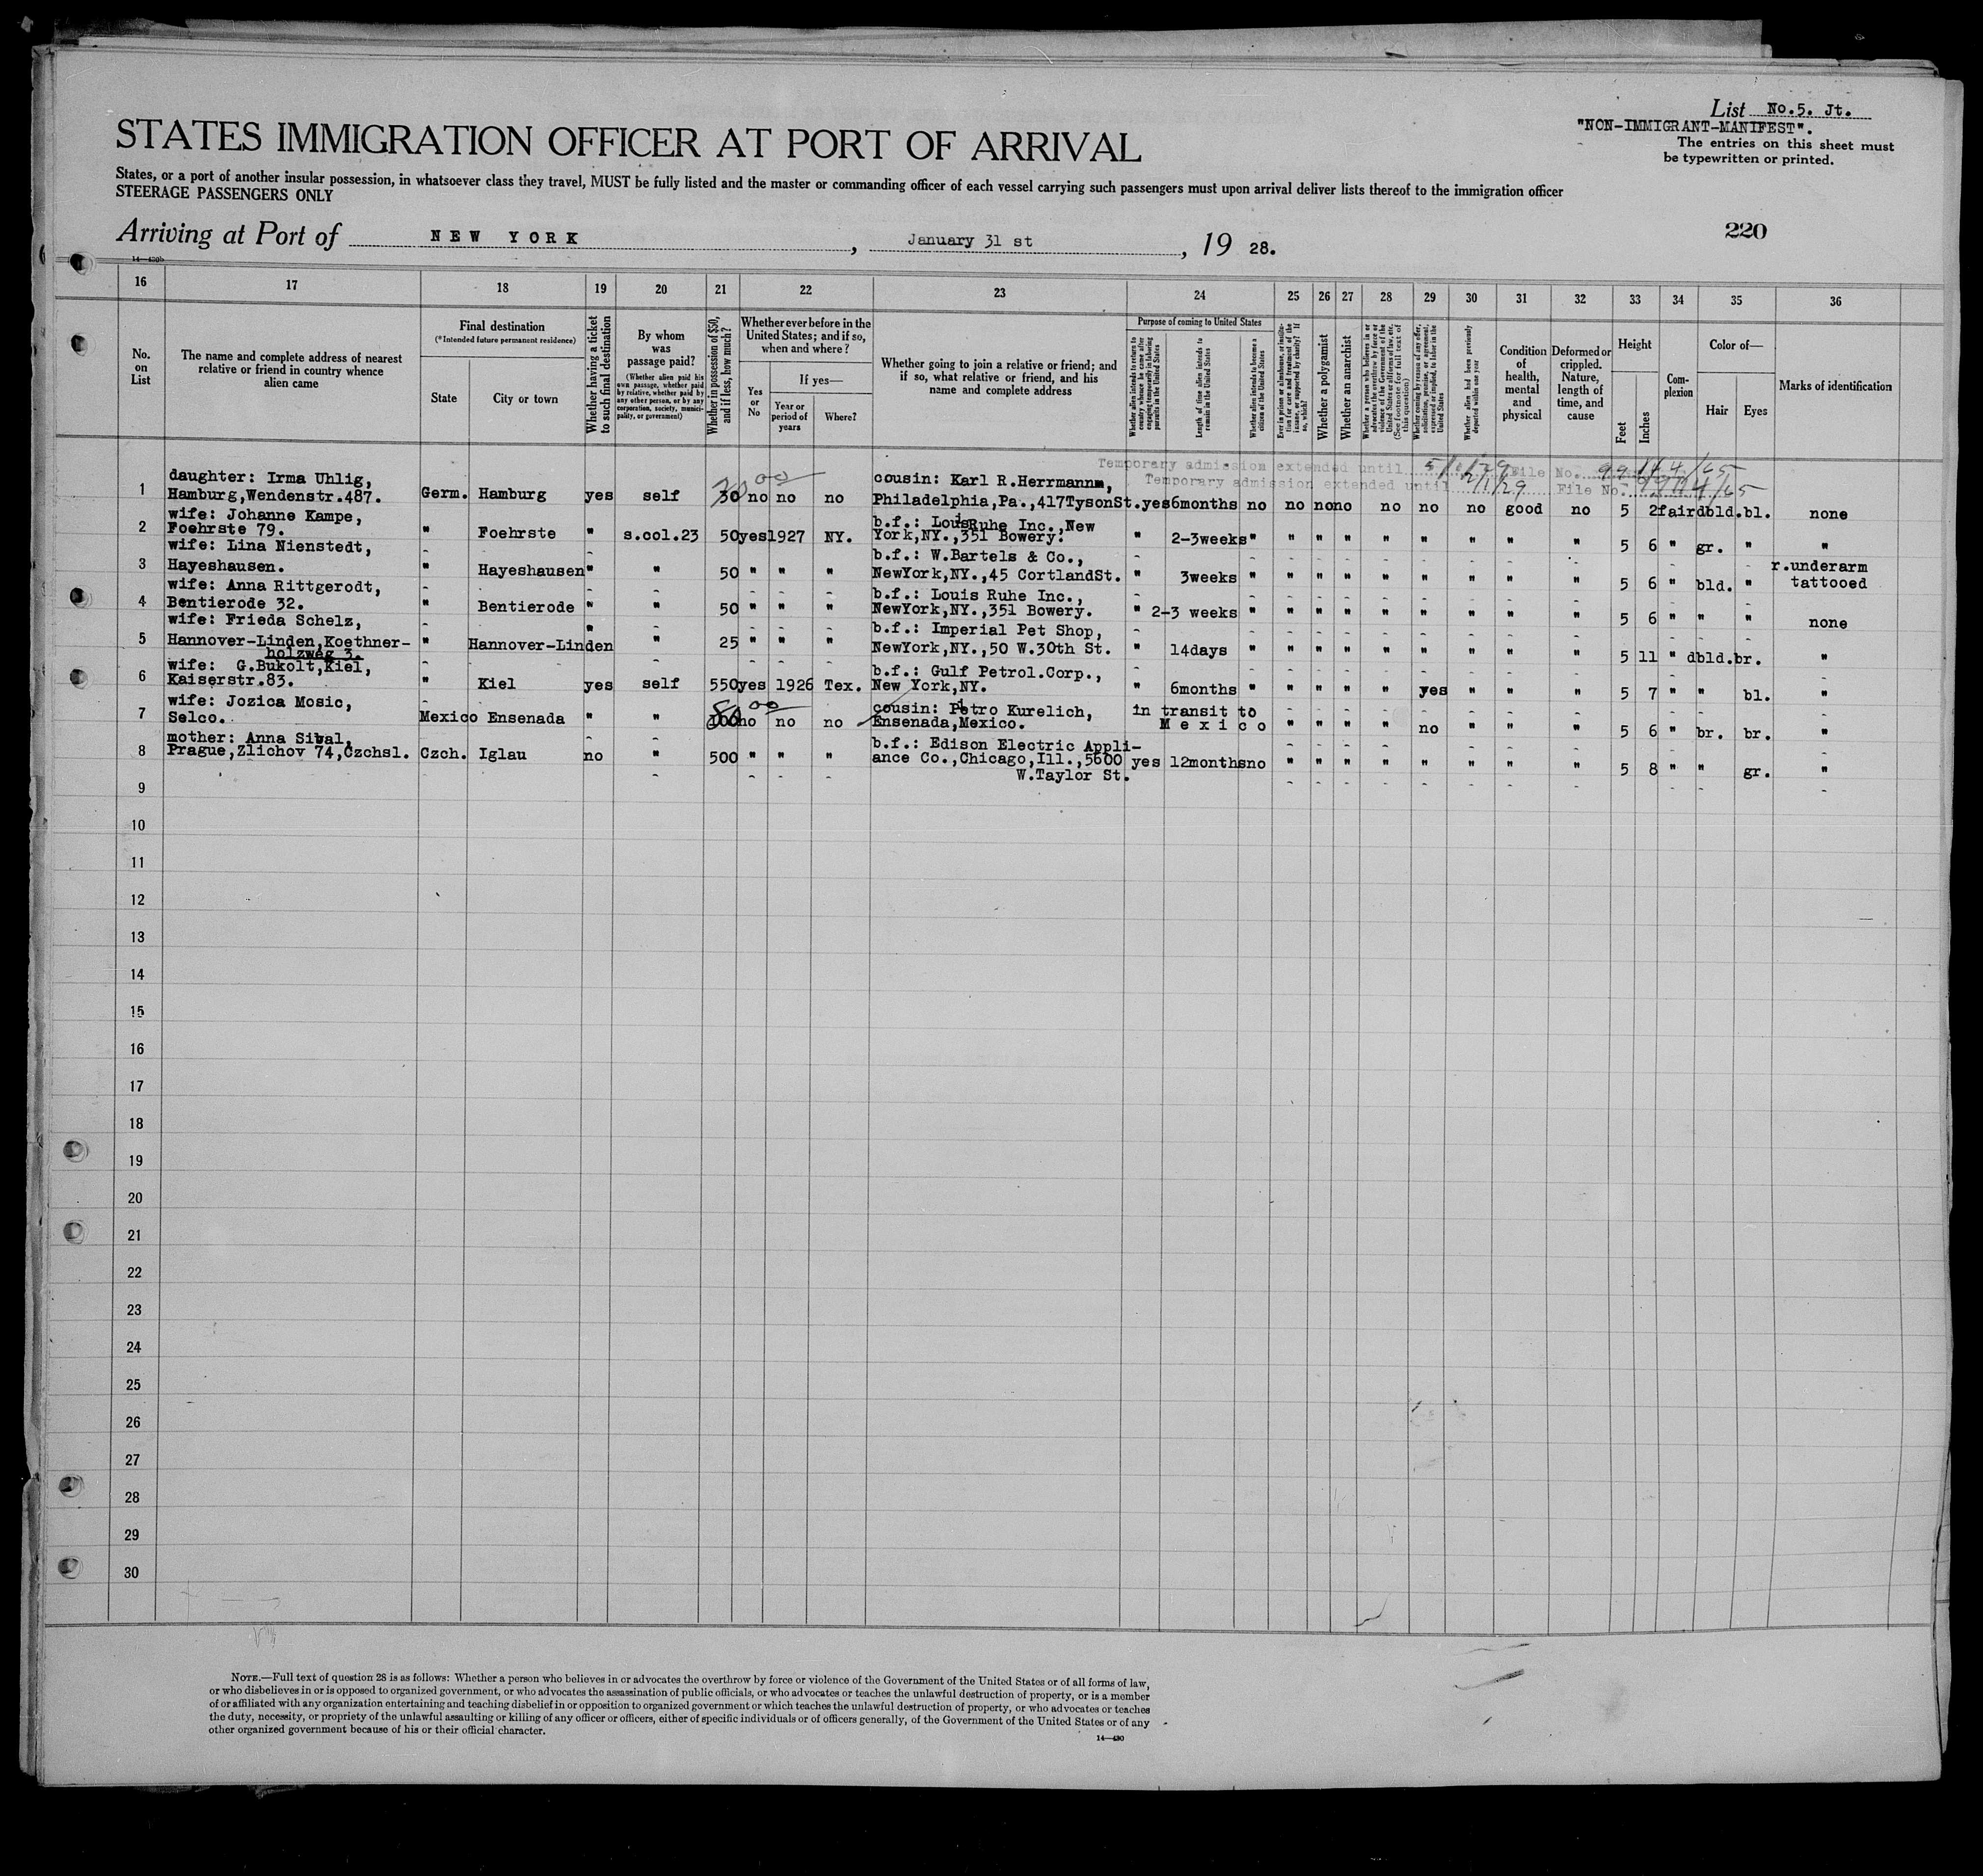 List No.5. Jt.
"NON-IMMIGRANT-MANIFEST".
The entries on this sheet must
be typewritten or printed.
STATES IMMIGRATION OFFICER AT PORT OF ARRIVAL
States, or a port of another insular possession, in whatsoever class they travel, MUST be fully listed and the master or commanding officer of each vessel carrying such passengers must upon arrival deliver lists thereof to the immigration officer
STEERAGE PASSENGERS ONLY
220
Arriving at Port of NEW YORK, January 31 st, 19 28.
14—430b
16 17 18 19 20 21 22 23 24 25 26 27 28 29 30 31 32 33 34 35 36
No. on List
The name and complete address of nearest relative or friend in country whence alien came
Final destination
(*Intended future permanent residence)
State
City or town
Whether having a ticket to such final destination
By whom was passage paid?
(Whether alien paid his own passage, whether paid by relative, whether paid by any other person, or by any corporation, society, municipality, or government)
Whether in possession of $50, and if less, how much?
Whether ever before in the United States; and if so, when and where?
Yes or No
If yes—
Year or period of years
Where?
Whether going to join a relative or friend; and if so, what relative or friend, and his name and complete address
Purpose of coming to United States
Whether alien intends to return to country whence he came after engaging temporarily in laboring pursuits in the United States
Length of time alien intends to remain in the United States
Whether alien intends to become a citizen of the United States
Ever in prison or almshouse, or institution for care and treatment of the insane, or supported by charity? If so, which?
Whether a polygamist
Whether an anarchist
Whether a person who believes in or advocates the overthrow by force or violence of the Government of the United States or all forms of law, etc. (See footnote for full text of this question)
Whether coming by reason of any offer, solicitation, promise, or agreement, expressed or implied, to labor in the United States
Whether alien had been previously deported within one year
Condition of health, mental and physical
Deformed or crippled. Nature, length of time, and cause
Height
Feet
Inches
Complexion
Color of—
Hair
Eyes
Marks of identification
Temporary admission extended until File No.
Temporary admission extended until 2/1/29 File No.
1 daughter: Irma Uhlig, Hamburg,Wendenstr.487. Germ. Hamburg yes self 30 no no no cousin: Karl R.Herrmann, Philadelphia,Pa.,417TysonSt. yes 6months no no no no no no no good no 5 2 fair dbld. bl. none
2 wife: Johanne Kampe, Foehrste 79. " Foehrste " s.col.23 50 yes 1927 NY. b.f.: Louis Ruhe Inc.,New York,NY.,351 Bowery. " 2-3weeks " " " " " " " " " 5 6 " gr. " "
3 wife: Lina Nienstedt, Hayeshausen. " Hayeshausen " " 50 " " " b.f.: W.Bartels & Co., NewYork,NY.,45 CortlandSt. " 3weeks " " " " " " " " " 5 6 " bld. " r.underarm tattooed
4 wife: Anna Rittgerodt, Bentierode 32. " Bentierode " " 50 " " " b.f.: Louis Ruhe Inc., NewYork,NY.,351 Bowery. " 2-3 weeks " " " " " " " " " 5 6 " " " none
5 wife: Frieda Schelz, Hannover-Linden,Koethner-holzweg 3. " Hannover-Linden " " 25 " " " b.f.: Imperial Pet Shop, NewYork,NY.,50 W.30th St. " 14days " " " " " " " " " 5 11 " dbld. br. "
6 wife: G.Bukolt,Kiel, Kaiserstr.83. " Kiel yes self 550 yes 1926 Tex. b.f.: Gulf Petrol.Corp., New York,NY. " 6months " " " " " yes " " " 5 7 " " bl. "
7 wife: Jozica Mosic, Selco. Mexico Ensenada " " 80 00 no no no cousin: Petro Kurelich, Ensenada,Mexico. in transit to Mexico " " " " no " " " 5 6 " br. br. "
8 mother: Anna Sival, Prague,Zlichov 74,Czchsl. Czch. Iglau no " 500 " " " b.f.: Edison Electric Appli-ance Co.,Chicago,Ill.,5600 W.Taylor St. yes 12months no " " " " " " " " 5 8 " " gr. "
9
10
11
12
13
14
15
16
17
18
19
20
21
22
23
24
25
26
27
28
29
30
NOTE.—Full text of question 28 is as follows: Whether a person who believes in or advocates the overthrow by force or violence of the Government of the United States or of all forms of law,
or who disbelieves in or is opposed to organized government, or who advocates the assassination of public officials, or who advocates or teaches the unlawful destruction of property, or is a member
of or affiliated with any organization entertaining and teaching disbelief in or opposition to organized government or which teaches the unlawful destruction of property, or who advocates or teaches
the duty, necessity, or propriety of the unlawful assaulting or killing of any officer or officers, either of specific individuals or of officers generally, of the Government of the United States or of any
other organized government because of his or their official character.
14—430